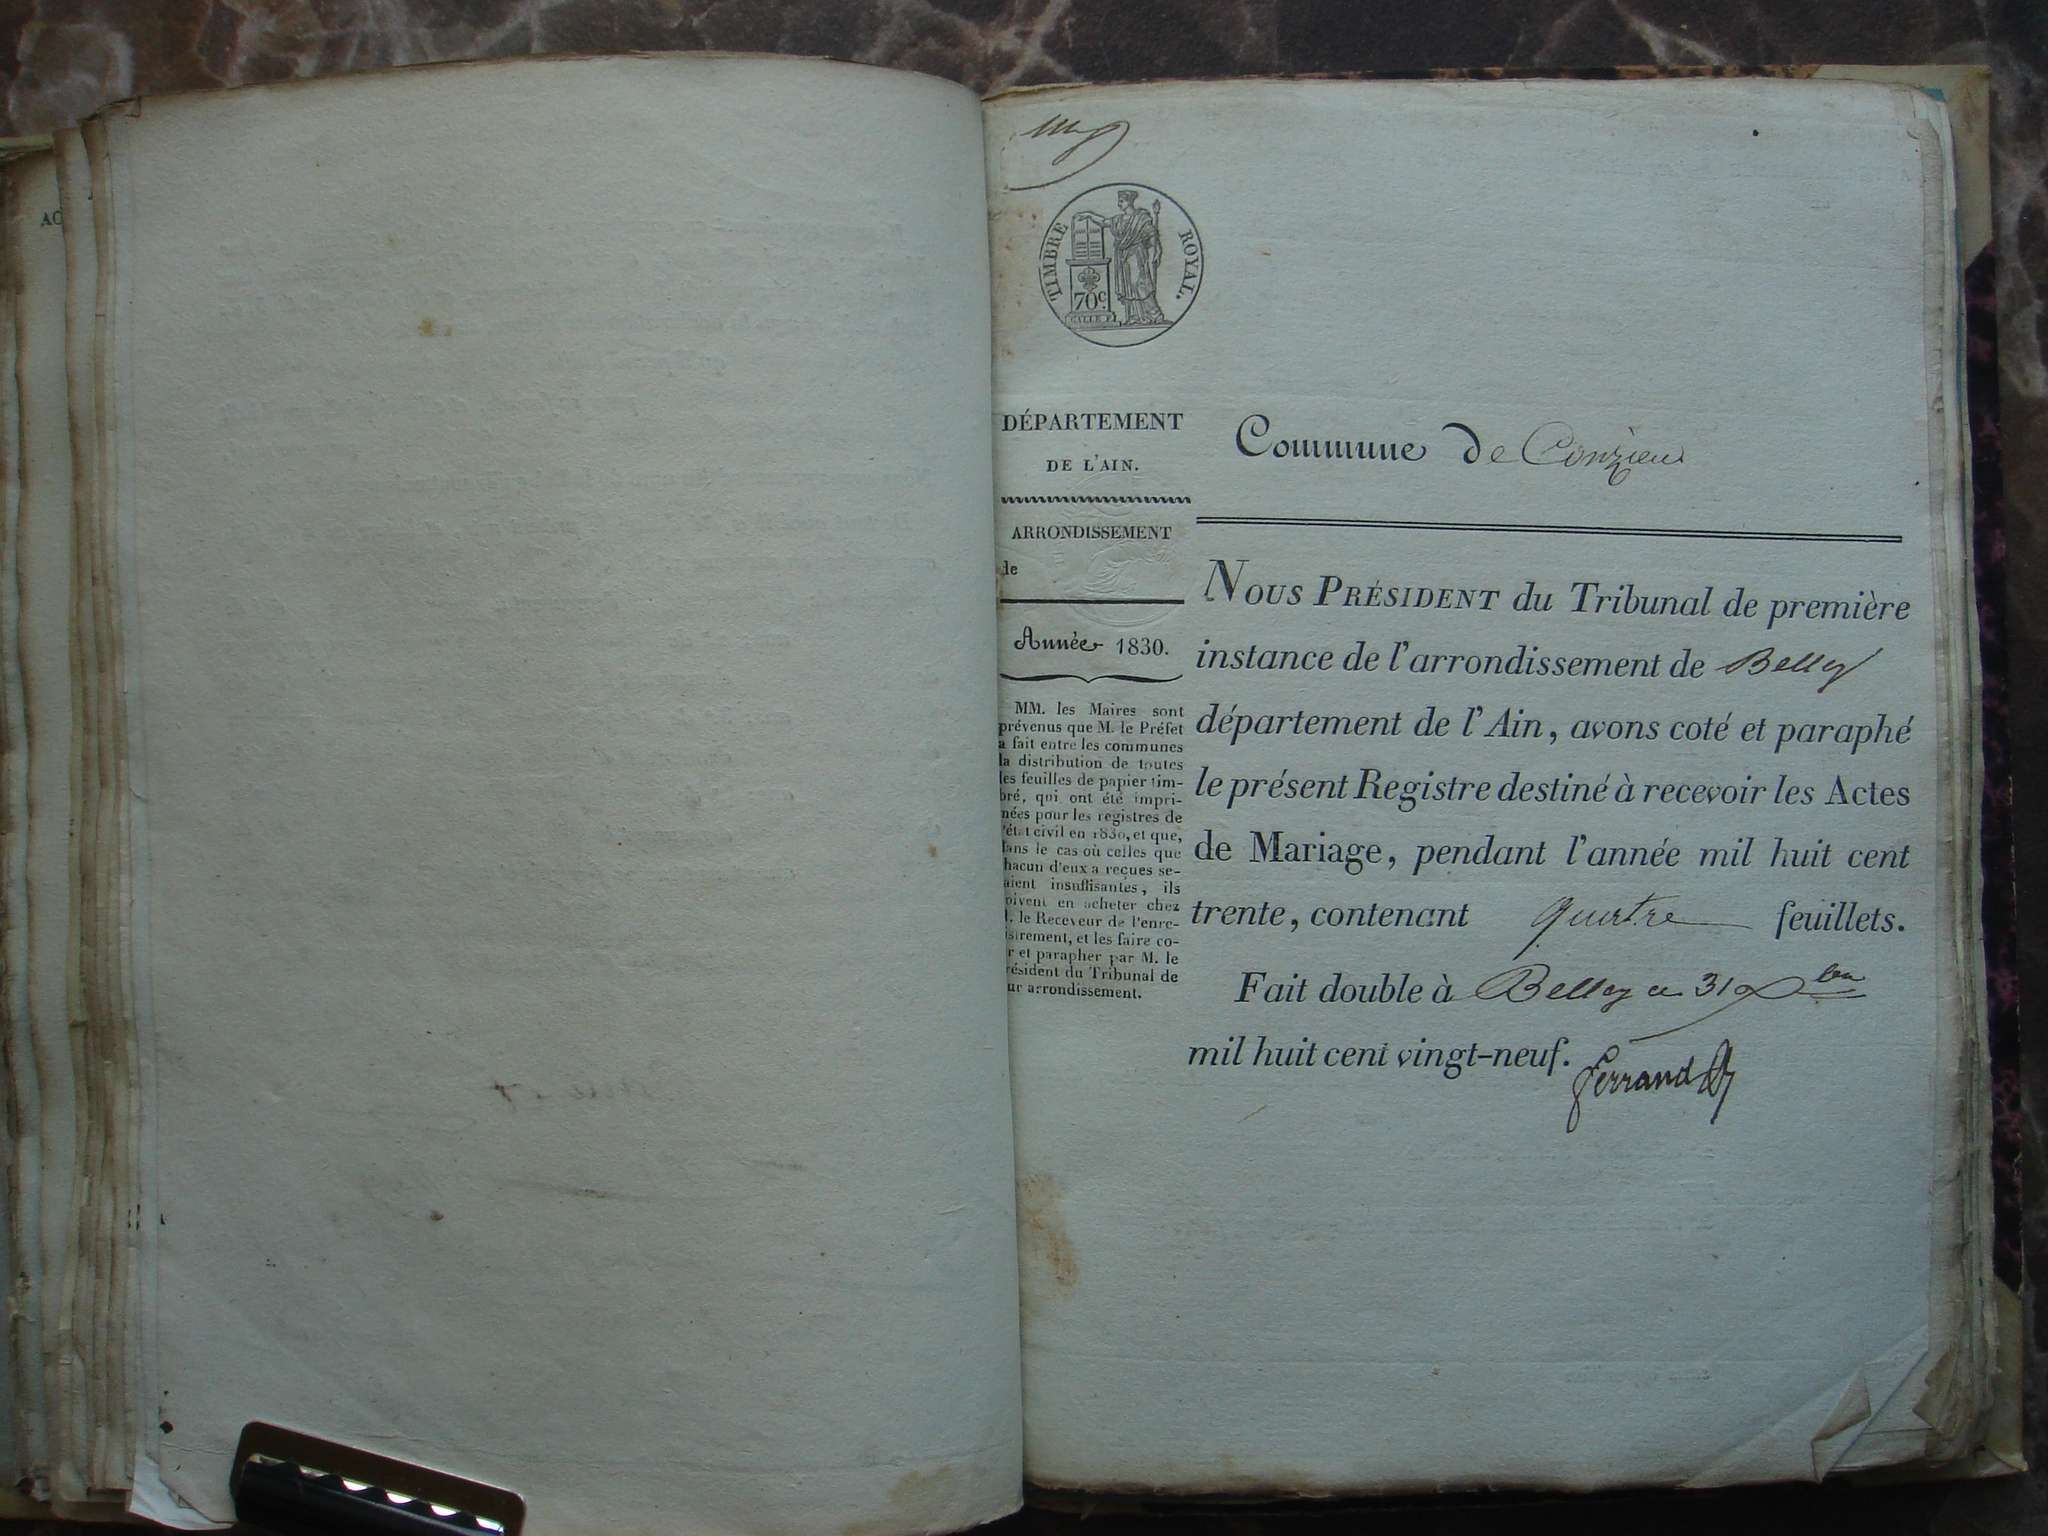 AC
TIMBRE ROYAL.
70c.
DÉPARTEMENT
DE L'AIN.
ARRONDISSEMENT
de
Année 1830.
MM. les Maires sont
prévenus que M. le Préfet
a fait entre les communes
la distribution de toutes
les feuilles de papier tim-
bré, qui ont été impri-
mées pour les registres de
l'état civil en 1830, et que,
dans le cas où celles que
chacun d'eux a reçues se-
raient insuffisantes, ils
doivent en acheter chez
M. le Receveur de l'enre-
gistrement, et les faire co-
ter et parapher par M. le
Président du Tribunal de
leur arrondissement.
Commune de Conzieu
NOUS PRÉSIDENT du Tribunal de première
instance de l'arrondissement de Belley
département de l'Ain, avons coté et paraphé
le présent Registre destiné à recevoir les Actes
de Mariage, pendant l'année mil huit cent
trente, contenant quatre feuillets.
Fait double à Belley ce 31 Xbre
mil huit cent vingt-neuf.
Ferrand